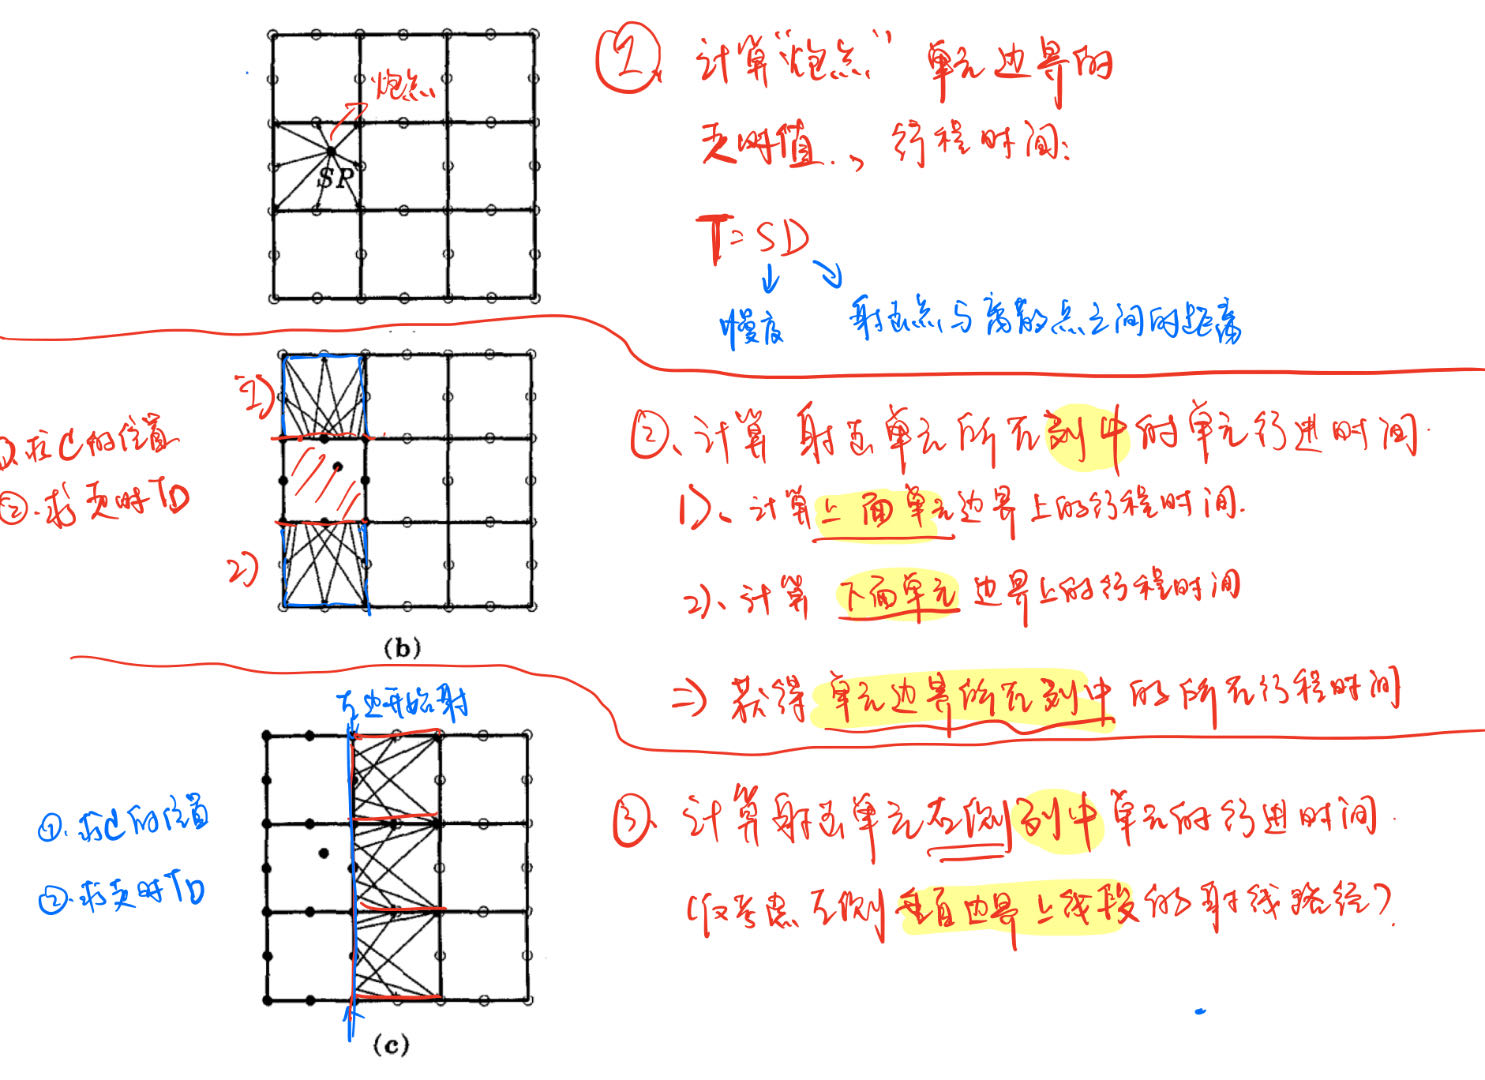 ①、计算“炮点”单元边界的
走时值.、行程时间:
炮点
SP
T=SD
慢度
射点与离散点之间的距离
1)
①.求C的位置
②.求走时TD
2)
(b)
②、计算射点单元所在列中的单元行进时间.
1)、计算上面单元边界上的行程时间.
2)、计算下面单元边界上的行程时间
=> 获得单元边界所在列中的所有行程时间
左边开始射
①.求C的位置
②.求走时TD
(c)
③、计算射点单元右侧列中单元的行进时间.
(仅考虑左侧垂直边界上线段的射线路径)